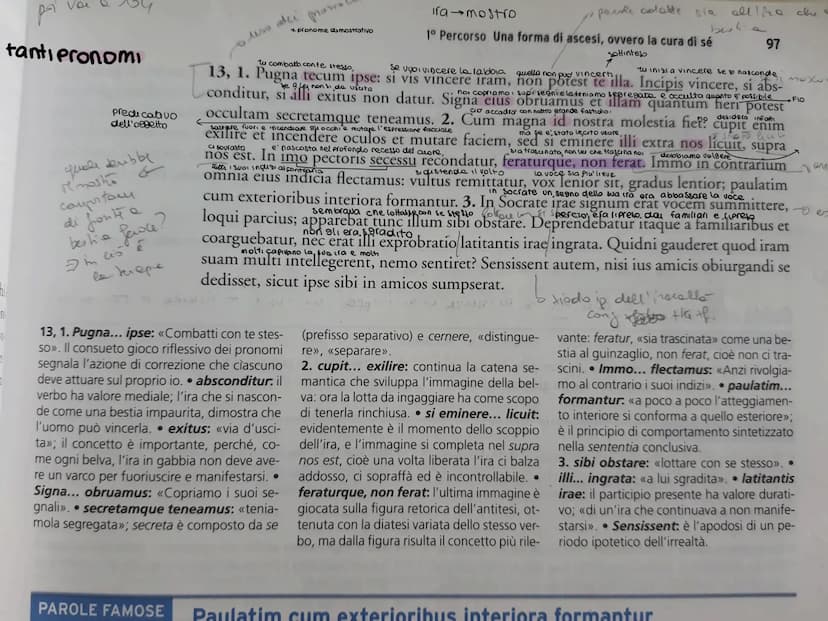 ira→mostro
+ pronome dimostrativo
1° Percorso Una forma di ascesi, ovvero la cura di sé 97
tanti pronomi
sottinteso
Tu combatti con te stesso, se vuoi vincere la rabbia quella non può vincerti Tu inizi a vincere se si nasconde,
13, 1. Pugna tecum ipse: si vis vincere iram, non potest te illa. Incipis vincere, si abs-
conditur, si illi exitus non datur. Signa eius obruamus et illam quantum fieri potest
predicativo
dell'oggetto
occultam secretamque teneamus. 2. Cum magna id nostra molestia fiet: cupit enim
exilire et incendere oculos et mutare faciem, sed si eminere illi extra nos licuit, supra
nos est. In imo pectoris secessu recondatur, feraturque, non ferat. Immo in contrarium
si distenda il volto la voce sia più lieve
omnia eius indicia flectamus: vultus remittatur, vox lenior sit, gradus lentior; paulatim
in Socrate un segno della sua ira era abbassare la voce
cum exterioribus interiora formantur. 3. In Socrate irae signum erat vocem summittere,
loqui parcius; apparebat tunc illum sibi obstare. Deprendebatur itaque a familiaribus et
non gli era sgradito
coarguebatur, nec erat illi exprobratio latitantis irae ingrata. Quidni gauderet quod iram
molti capivano la sua ira e molti
suam multi intellegerent, nemo sentiret? Sensissent autem, nisi ius amicis obiurgandi se
dedisset, sicut ipse sibi in amicos sumpserat.
13, 1. Pugna... ipse: «Combatti con te stes-
so». Il consueto gioco riflessivo dei pronomi
segnala l'azione di correzione che ciascuno
deve attuare sul proprio io. • absconditur: il
verbo ha valore mediale; l'ira che si nascon-
de come una bestia impaurita, dimostra che
l'uomo può vincerla. • exitus: «via d'usci-
ta»; il concetto è importante, perché, co-
me ogni belva, l'ira in gabbia non deve ave-
re un varco per fuoriuscire e manifestarsi. •
Signa... obruamus: «Copriamo i suoi se-
gnali». • secretamque teneamus: «tenia-
mola segregata»; secreta è composto da se
(prefisso separativo) e cernere, «distingue-
re», «separare».
2. cupit... exilire: continua la catena se-
mantica che sviluppa l'immagine della bel-
va: ora la lotta da ingaggiare ha come scopo
di tenerla rinchiusa. • si eminere... licuit:
evidentemente è il momento dello scoppio
dell'ira, e l'immagine si completa nel supra
nos est, cioè una volta liberata l'ira ci balza
addosso, ci sopraffà ed è incontrollabile. •
feraturque, non ferat: l'ultima immagine è
giocata sulla figura retorica dell'antitesi, ot-
tenuta con la diatesi variata dello stesso ver-
bo, ma dalla figura risulta il concetto più rile-
vante: feratur, «sia trascinata» come una be-
stia al guinzaglio, non ferat, cioè non ci tra-
scini. • Immo... flectamus: «Anzi rivolgia-
mo al contrario i suoi indizi». • paulatim...
formantur: «a poco a poco l'atteggiamen-
to interiore si conforma a quello esteriore»;
è il principio di comportamento sintetizzato
nella sententia conclusiva.
3. sibi obstare: «lottare con se stesso». •
illi... ingrata: «a lui sgradita». • latitantis
irae: il participio presente ha valore durati-
vo; «di un'ira che continuava a non manife-
starsi». • Sensissent: è l'apodosi di un pe-
riodo ipotetico dell'irrealtà.
PAROLE FAMOSE Paulatim cum exterioribus interiora formantur